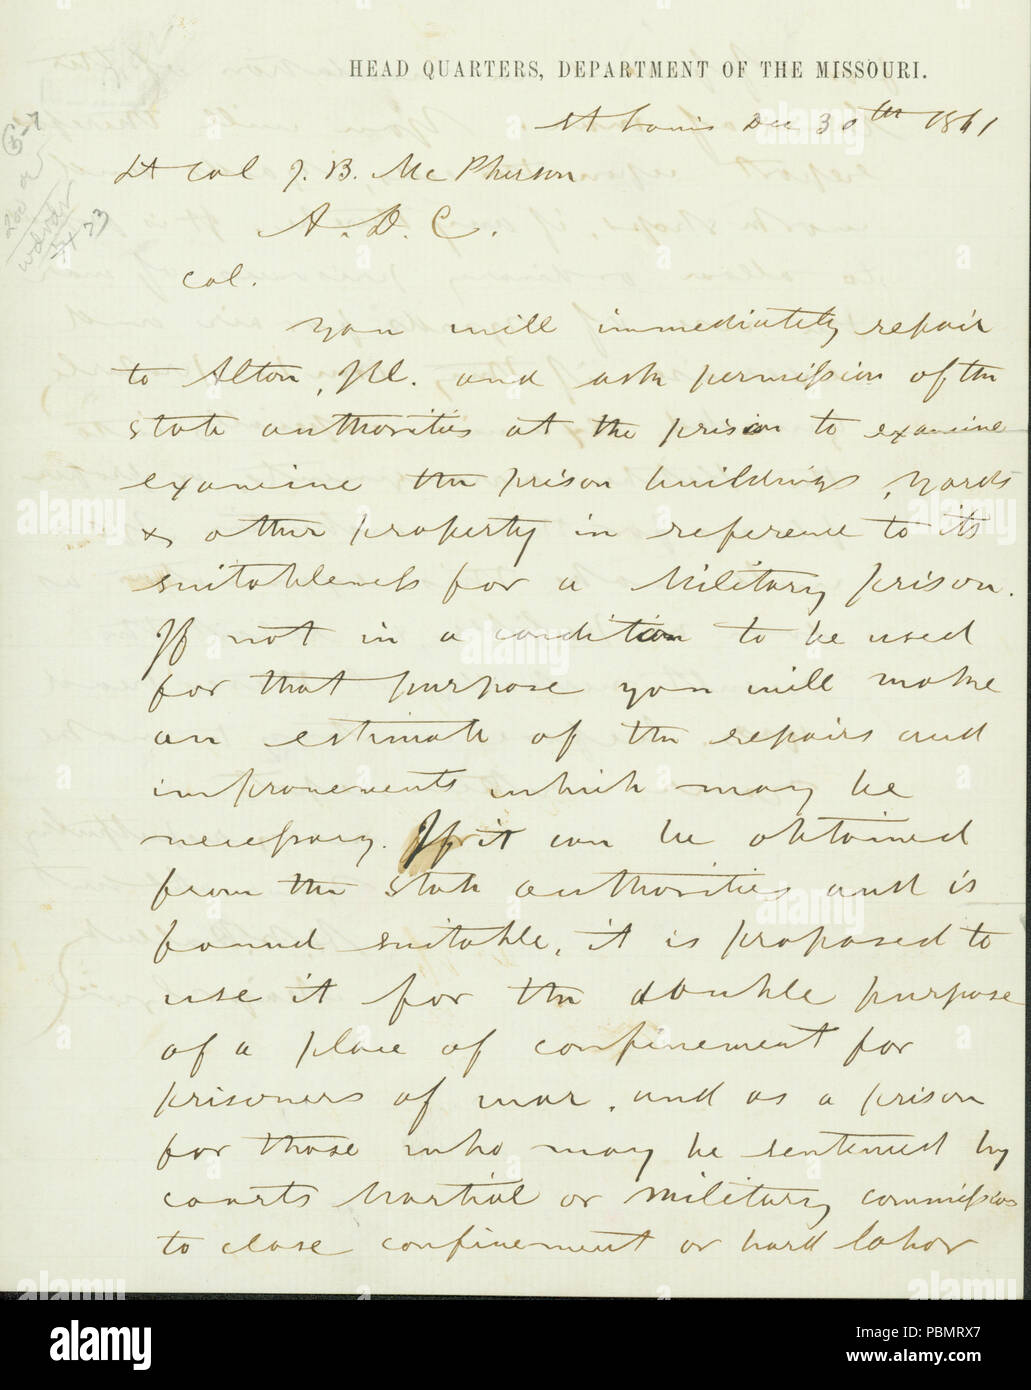 HEAD QUARTERS, DEPARTMENT OF THE MISSOURI.
St Louis Dec 30th 1861
Lt Col J. B. McPherson
A. D. C.
Col.
You will immediately repair
to Alton, Ill. and ask permission of the
state authorities at the prison to examine
examine the prison buildings, yards
& other property in reference to its
suitableness for a Military prison.
If not in a condition to be used
for that purpose you will make
an estimate of the repairs and
improvements which may be
necessary. If it can be obtained
from the State authorities and is
found suitable, it is proposed to
use it for the double purpose
of a place of confinement for
prisoners of war, and as a prison
for those who may be sentenced by
courts Martial or military commissions
to close confinement or hard labor
alamy
alamy stock photo
Image ID: PBMRX7
www.alamy.com